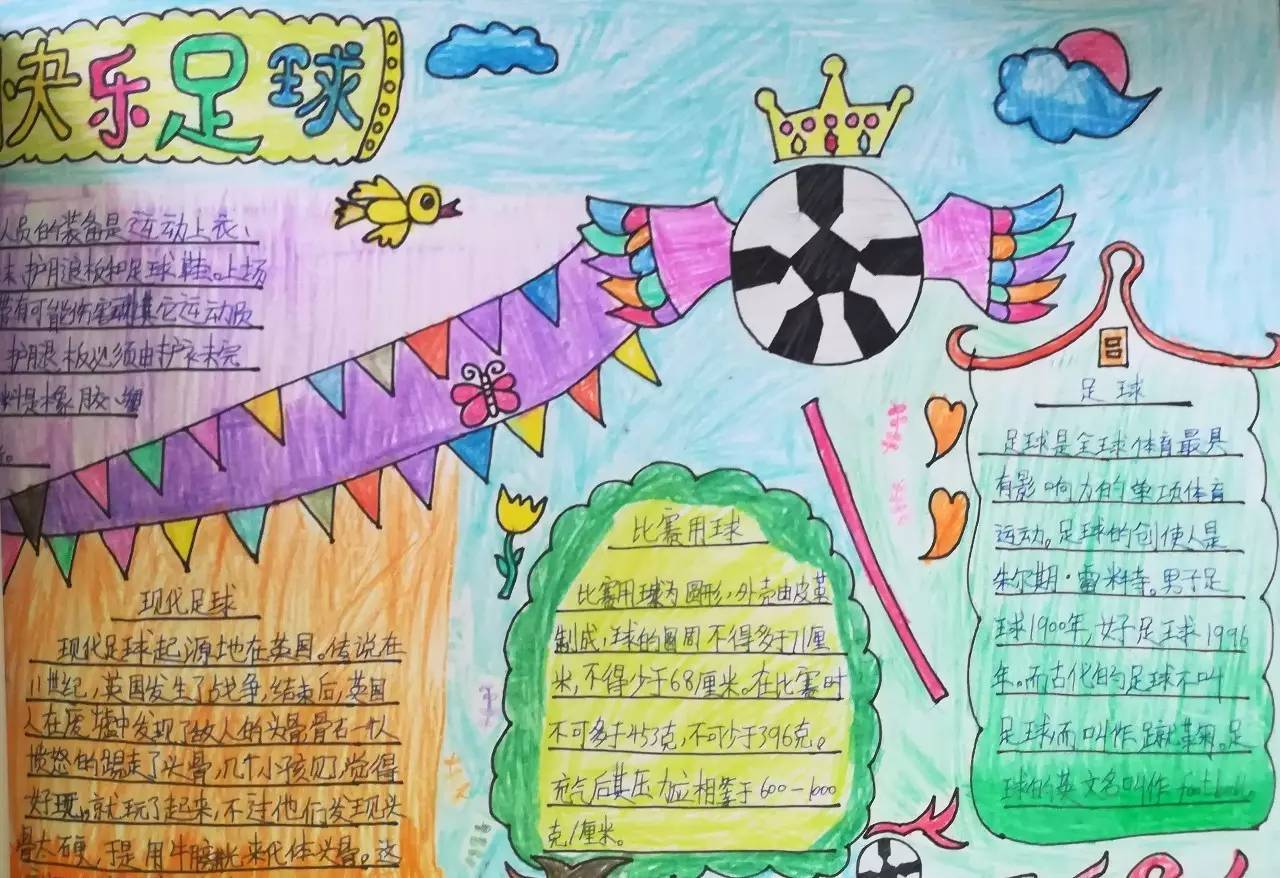 快乐足球
人员的装备是运动上衣、
末护月退板和足球鞋。上场
带有可能伤害其它运动员
护腿板必须由护衣末完
料是橡胶、塑
现代足球
现代足球起源地在英国。传说在
11世纪,英国发生了战争,结束后,英国
人在废墟中发现了敌人的头骨骨石一队
愤怒的踢走了头骨,几个小孩见了,觉得
好现。就玩了起来,不过他们发现头
骨太硬,于是用牛膀胱来代体头骨。这
比赛用球
比赛用球为圆形,外壳由皮革
制成,球的圆周不得多于71厘
米,不得少于68厘米。在比赛时
不可多于453克,不可少于396克。
充气后其压力应相等于600—1000
克/厘米。
足球
足球是全球体育最具
有影响力的单项体育
运动。足球的创使人是
朱尔期·雷米特。男子足
球1900年,女子足球1996
年。而古代的足球不叫
足球而叫作蹴鞠。足
球的英文名叫作football。